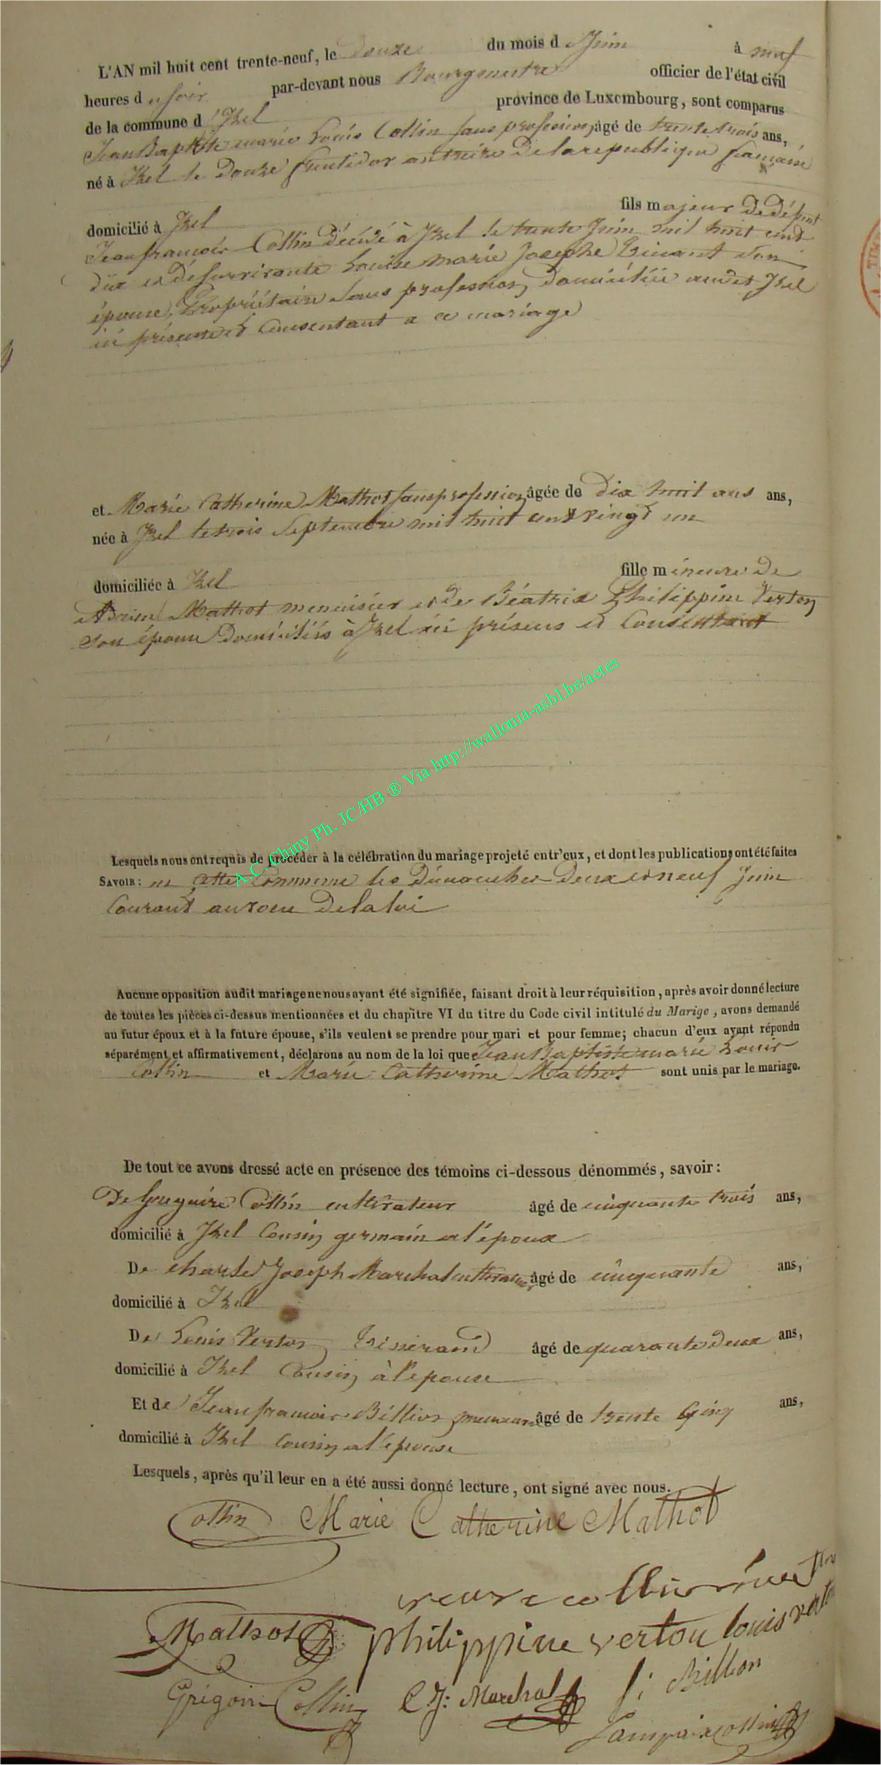 L'AN mil huit cent trente-neuf, le douze du mois d Juin à neuf
heures d u soir par-devant nous Bourgmestre officier de l'état civil
de la commune d' Izel province de Luxembourg, sont comparus
Jean Baptiste marie Louis Collin sans profession, âgé de trente trois ans,
né à Izel le Douze fructidor an treize De la republique francaise
domicilié à Izel fils majeur De défunt
Jean francois Collin décédé à Izel le trente Juin mil huit cent
dix et de survivante Louise marie Josephe Tinant son
épouse, Propriétaire sans profession, domiciliée audit Izel
ici présente et Consentant a ce mariage
et Marie Catherine Mathot sans profession âgée de Dix huit ans ans,
née à Izel le trois Septembre mil huit cent vingt un
domiciliée à Izel fille mineure De
Mathot menuisier et de Béatrix Philippine Verton
son épouse Domiciliés à Izel ici présens et Consentant
A.C. Chiny Ph. JCHB ® Via http://wallonia-asbl.be/actes
Lesquels nous ont requis de procéder à la célébration du mariage projeté entr'eux, et dont les publications ont été faites
SAVOIR: en cette Commune les Dimanches Deux et neuf Juin
Courant au voeu De la loi
Aucune opposition audit mariage ne nous ayant été signifiée, faisant droit à leur réquisition, après avoir donné lecture
de toutes les pièces ci-dessus mentionnées et du chapitre VI du titre du Code civil intitulé du Marige, avons demandé
au futur époux et à la future épouse, s'ils veulent se prendre pour mari et pour femme; chacun d'eux ayant répondu
séparément et affirmativement, déclarons au nom de la loi que Jean Baptiste marie Louis
Collin et Marie Catherine Mathot sont unis par le mariage.
De tout ce avons dressé acte en présence des témoins ci-dessous dénommés, savoir:
De Greguire Collin cultivateur âgé de cinquante trois ans,
domicilié à Izel Cousin germain a l'époux
De charles Joseph Marchal cultivateur âgé de cinquante ans,
domicilié à Izel
De Louis Verton Tisserand âgé de quarante Deux ans,
domicilié à Izel Cousin à l'épouse
Et de Jean francois Billion âgé de trente Cinq ans,
domicilié à Izel cousin a l'épouse
Lesquels, après qu'il leur en a été aussi donné lecture, ont signé avec nous.
Collin Marie Catherine Mathot
veuve collin née
Mathot philippine verton louis verton
Grégoire Collin C. J: Marchal Billion
Collin